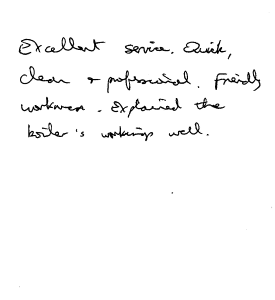 Excellent service. Quick,
clean & professional. Friendly
workmen. Explained the
boiler's workings well.